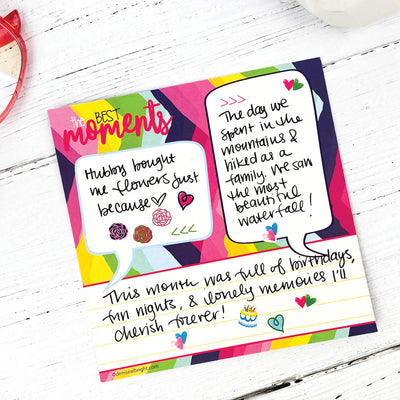 the BEST
moments
Hubby bought
me flowers just
because
<<<
>>>
The day we
spent in the
mountains &
hiked as a
family. We saw
the most
beautiful
waterfall!
This month was full of birthdays,
fun nights, & lovely memories I'll
cherish forever!
©denisealbright.com